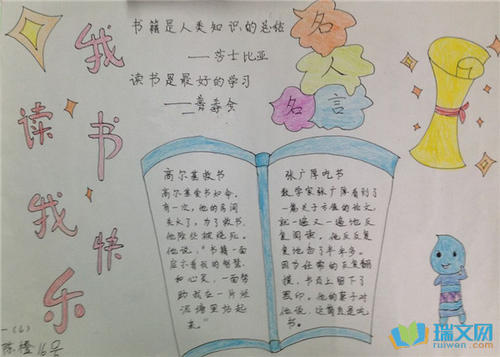 我读书我快乐
书籍是人类知识的总结
——莎士比亚
读书是最好的学习
名人名言
高尔基救书
高尔基爱书如命,
有一次,他的房间
失火了,为了救书,
他险些被烧死。
他说,“书籍一面
启示着我的智慧,
和心灵,一面帮
助我在一片烂
泥塘里站起
来。”
张广厚吃书
数学家张广厚看到了
一篇关于方值的论文,
就一遍又一遍地反
复阅读,他反反复
复地看了半年多。
因为经常的反复翻
摸,书页上留下了
黑印。他的妻子对
他说,这简直是吃
书。
一(6)
陈 16号
瑞文网
ruiwen.com